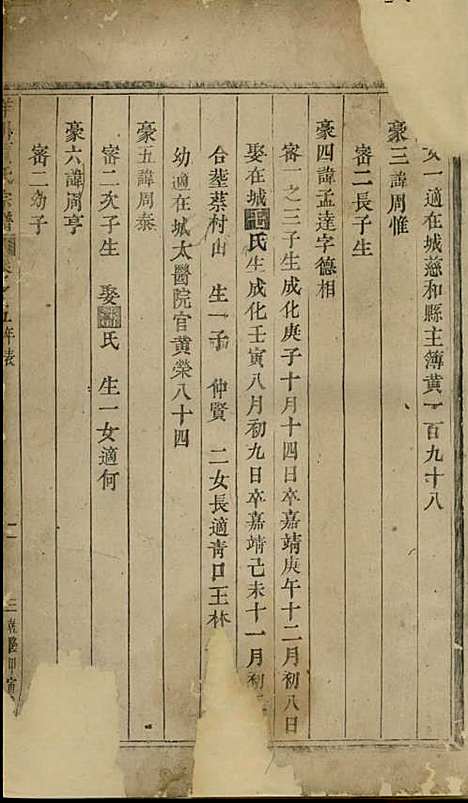 女一適在城慈和縣主簿黃一百九十八
豪三諱周惟
審二長子生
豪四諱孟達字德相
審一之三子生成化庚子十月十四日卒嘉靖庚午十二月初八日
娶在城氏生成化壬寅八月初九日卒嘉靖己未十一月初
合塟蔡村山 生一子 仲賢 二女長適青口王林
幼適在城太醫院官黃榮八十四
豪五諱周泰
審二次子生 娶氏 生一女適何
豪六諱周亨
審二幼子
氏宗譜 五年表